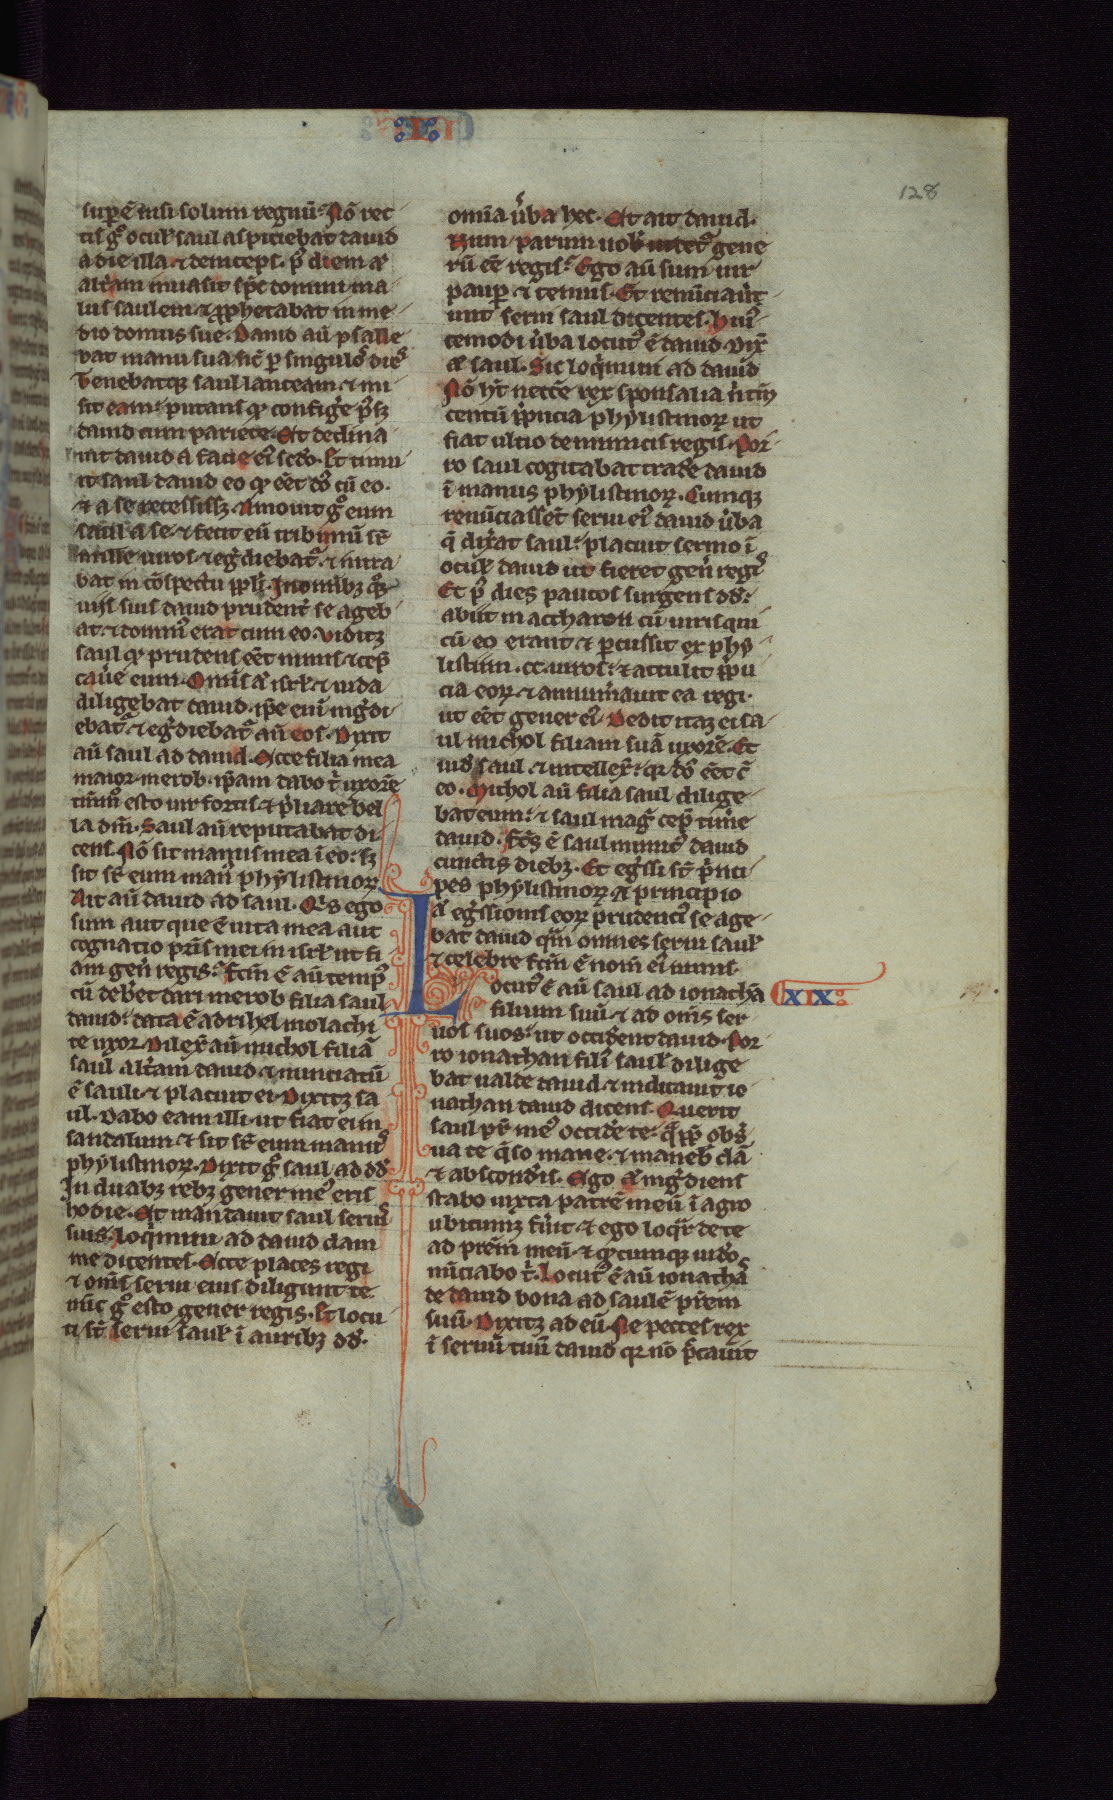 I
128
supē nisi solum regnū. Nō rec
tis gͦ oculꝭ saul aspiciebat dauid
a die illa. ⁊ deinceps. pꝰ diem aūt
alt̄am inuasit spc̄ domini ma
lus saulem. ⁊ ꝓphetabat in me
dio domus sue. Dauid aū psalle
bat manu sua sic̄ ꝑ singulos dies
Tenebatqꝫ saul lanceam. ⁊ mi
sit eam. putans qꝫ confige p̄sꝫ
dauid cum pariete. Et declina
uit dauid a facie eiꝰ scd̄o. Et timu
it saul dauid eo qꝫ eēt dn̄s cū eo.
⁊ a se recessissꝫ. Amouit gͦ eum
saul a se. ⁊ fecit eū tribunū sr̄
mille uiros. ⁊ eḡdiebatur. ⁊ intra
bat in cōspectu ppl̄i. In omībꝫ qꝫ
uiis suis dauid prudent̄ se ageb
at. ⁊ domīnꝰ erat cum eo. Viditqꝫ
saul qꝫ prudens eēt nimis. ⁊ cep̄
cauē eum. Omīs aūt isrl̄ ⁊ iuda
diligebat dauid. ip̄e enī inḡdi
ebatur ⁊ eḡdiebatur aū eos. Dixit
aū saul ad dauid. Ecce filia mea
maior. merob. ip̄am dabo t̄ uxorē
tm̄mͦ esto uir fortis. ⁊ p̄liare bel
la dn̄i. Saul aū reputabat di
cens. Nō sit manus mea ī eo. sꝫ
sit sr̄ eum manꝰ phylistinorꝫ
Ait aū dauid ad saul. Qis ego
sum aut que ē uita mea aut
cognatio pr̄is mei in isrl̄ ut fi
am gen̄ regis. Fc̄m ē aū tempꝰ
cū deb̄et dari merob filia saul
dauid. data ē adrihel molathi
te uxor. Dilex̄ aū michol filiā
saul alt̄am dauid. ⁊ nunciatū
ē sauli. ⁊ placuit ei. Dixitqꝫ sa
ul. Dabo eam illi. ut fiat ei in
sandalum ⁊ sit sr̄ eum manꝰ
phylistinorꝫ. Dixit gͦ saul ad dd̄
In duabꝫ rebꝫ gener meꝰ eris
hodie. Et mandauit saul seruis
suis. Loq̄mini ad dauid clam
me dicentes. Ecce places regi
⁊ omīs serui eius diligunt te
nūc gͦ esto gener regis. Et locu
ti st̄ serui saulꝭ ī auribꝫ dd̄.
omīa ūba hec. Et ait dauid.
Num parum uob̄ uidet̄ gene
rū eē regis. Ego aū sum uir
paup̄ ⁊ tenuis. Et renūciaūt
unt serui saul dicentes. Huiꝰ
cemodi ūba locutꝰ ē dauid. Dix̄
aūt saul. Sic loq̄mini ad dauid
Nō ht̄ necc̄e rex sponsalia n̄ tm̄
centū p̄pucia phylistinorꝫ ut
fiat ultio de inimicis regis. Por
ro saul cogitabat trade dauid
ī manus phylistinorꝫ. Cumqꝫ
renūciassēt serui eiꝰ dauid ūba
q̄ dix̄at saul. placuit sermo ī
oculꝭ dauid ut fieret gen̄ regis
Et pꝰ dies paucos surgens dd̄.
abiit in accharon cū uiris qui
cū eo erant ⁊ ꝑcussit ex phy
listiim .cc. uiros. ⁊ attulit p̄pu
cia eorꝫ ⁊ annum̄auit ea regi.
ut eēt gener eiꝰ. Dedit itaqꝫ ei sa
ul michol filiam suā uxorē. Et
uid̄ saul ⁊ intellex̄. qꝛ dn̄s eēt cū
eo. Michol aū filia saul dilige
bat eum. ⁊ saul mag̓ cep̄ timē
dauid. Fc̄s ē saul inimicꝰ dauid
cunctis diebꝫ. Et eḡssi st̄ p̄nci
pes phylistinorꝫ. A principio
aūt eḡssionis eorꝫ prudenciꝰ se age
bat dauid qm̄ omnes serui saulꝭ
⁊ celebre fc̄m ē nom̄ eiꝰ nimis.
Locutꝰ ē aū saul ad ionathā
XIX
filium suū ⁊ ad omīs ser
uos suos. ut occident dauid. Por
ro ionathan filiꝰ saul dilige
bat ualde dauid. ⁊ indicauit io
nathan dauid dicens. Querit
saul pr̄ meꝰ occide te. qꝫ p̄pt̄ obs̄
ua te q̄so mane. ⁊ maneb̄ clā
⁊ absconderis. Ego aūt inḡdiens
stabo iuxta patrē meū ī agro
ubicumqꝫ fūit. ⁊ ego loqr̄ de te
ad pr̄em meū. ⁊ qꝫcumqꝫ uid̄o
nūciabo t̄. Locutꝰ ē aū ionathā
de dauid bona ad saulē pr̄em
suū. Dixitqꝫ ad eū. Ne pecces rex
ī seruū tuū dauid qꝛ nō p̄cauit